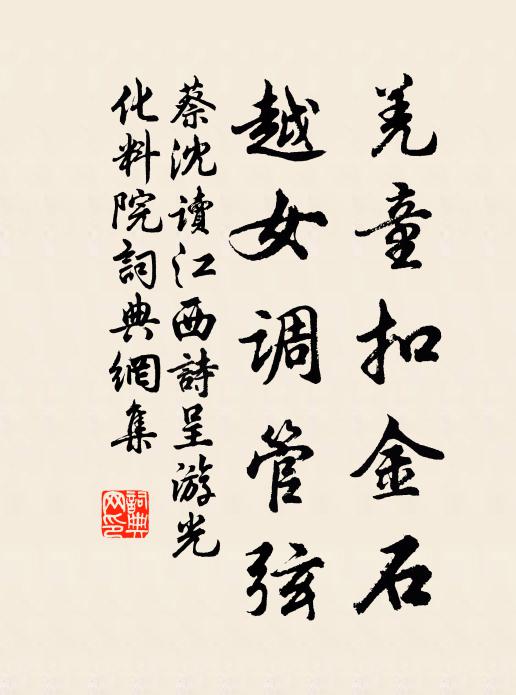 羌童扣金石
越女调管弦
蔡沈讀江西詩呈游光
化料院詞典網集
詞典網印